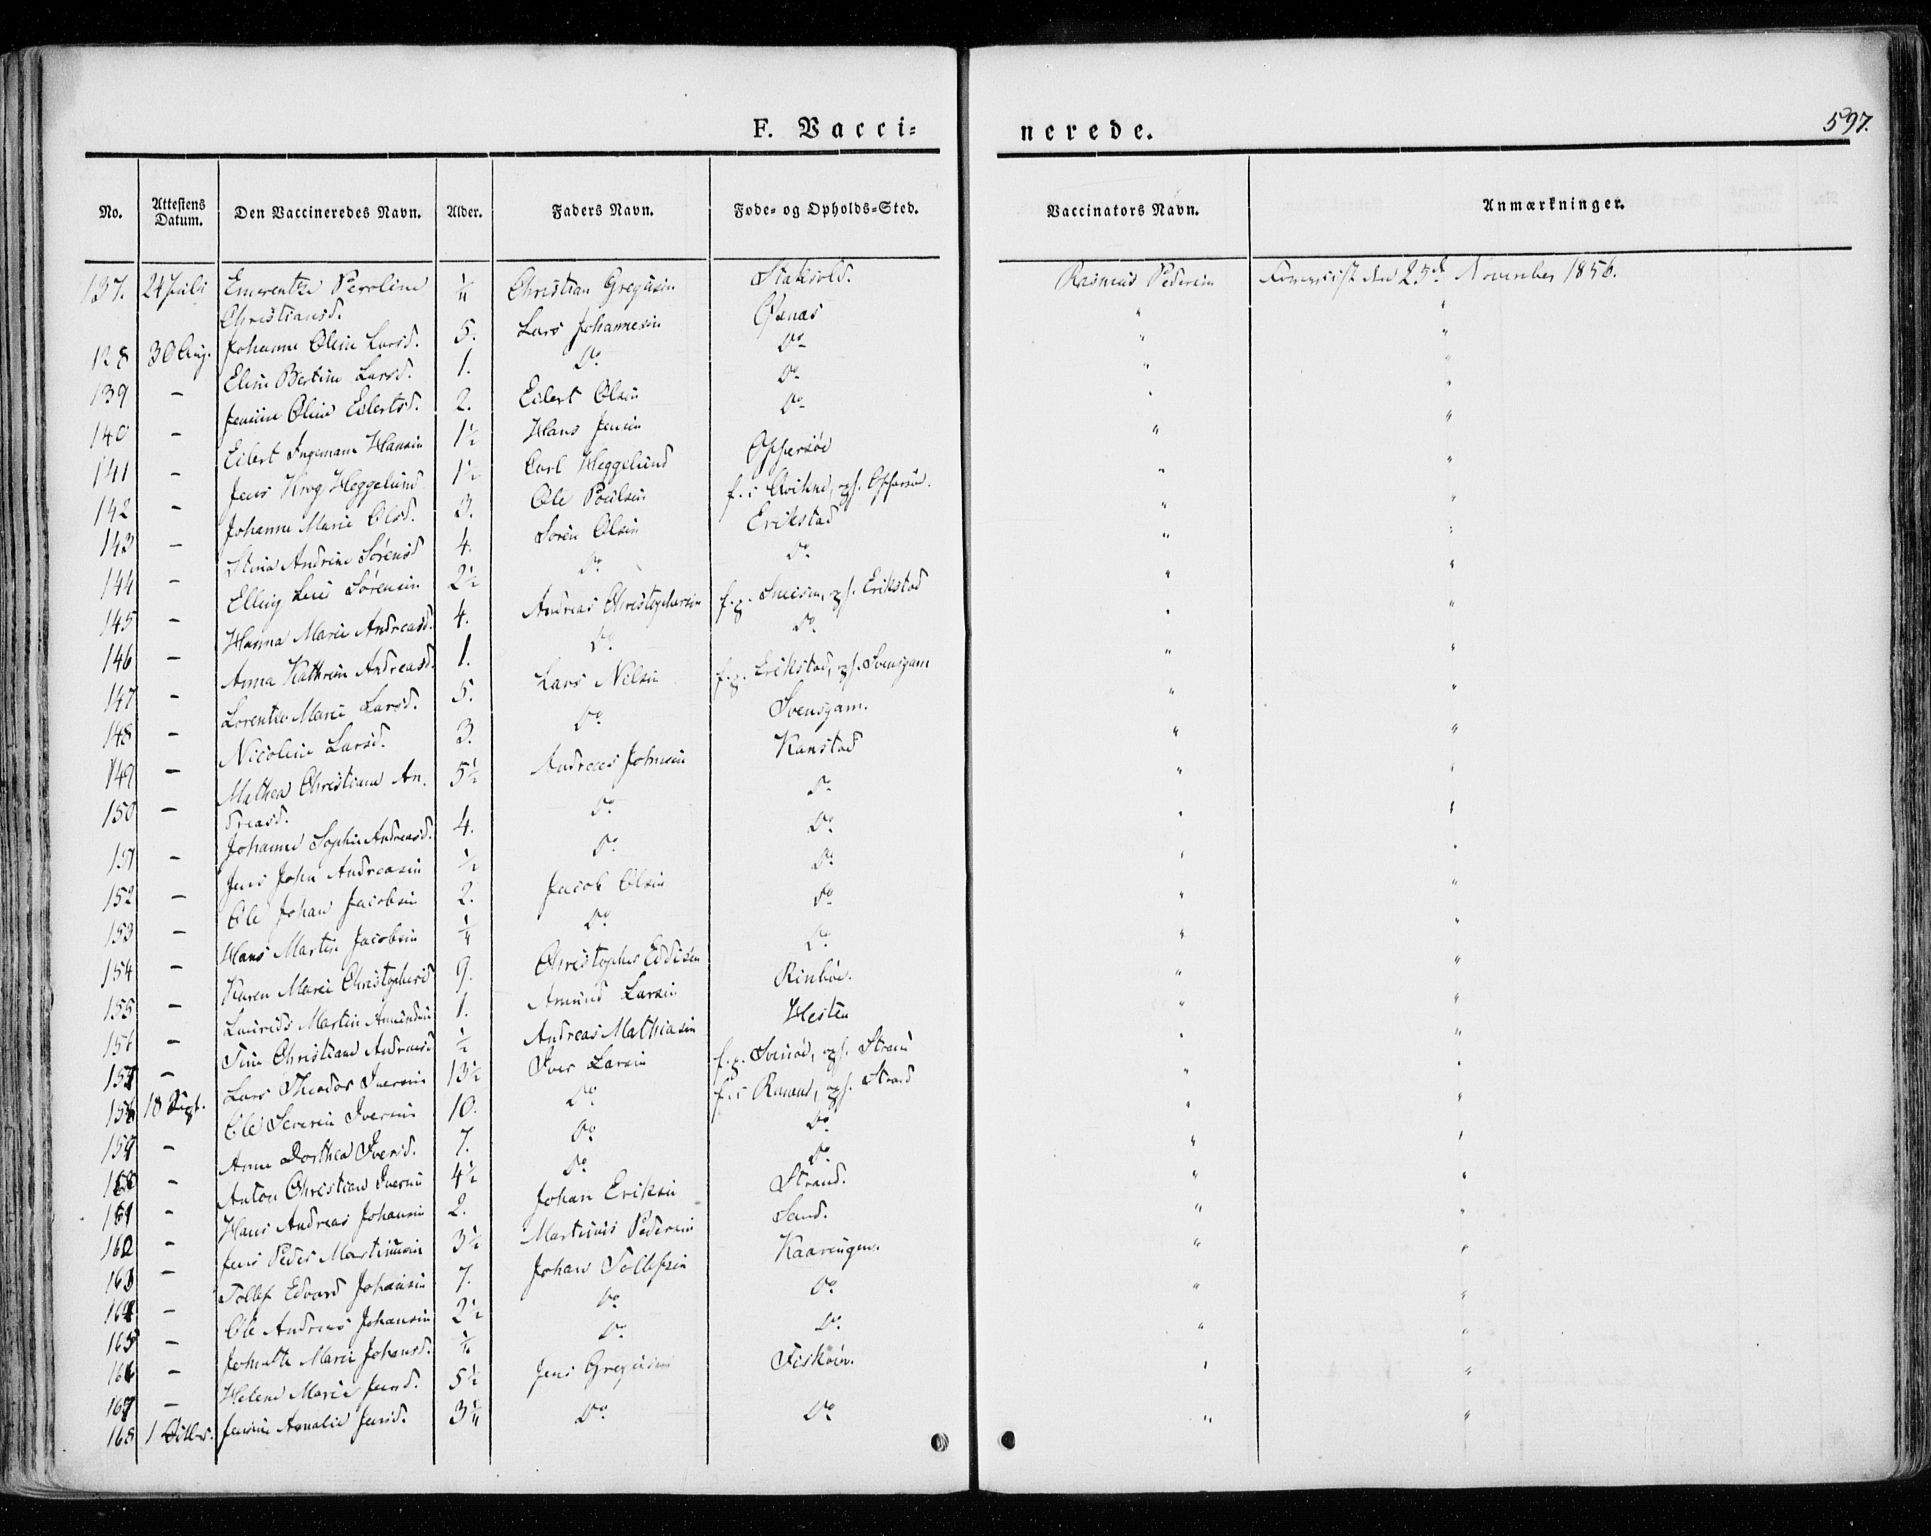 F. Vacci=
nerede.
597.
No. Attestens Datum. Den Vaccineredes Navn. Alder. Faders Navn. Føde- og Opholds-Sted. Vaccinators Navn. Anmærkninger.
137. 24 Juli Emerentze Peroline 1/4 Christian Gregusen Rasmus Pedersen Foreviist den 25d November 1856.
Christiansd.
128 30 Aug. Johanne Oline Larsd. 5. Lars Johannesen Qvænæs " "
139 – Eline Bertine Larsd. 1. Do Do " "
140 – Jensine Oline Eilertsd. 2. Eilert Olsen Do " "
141 – Eilert Ingemann Hansen 1½ Hans Jensen Do " "
142 – Jens Krog Heggelund 1½ Carl Heggelund Offersøe " "
143 – Johanne Marie Olsd. 3. Ole Poulsen " "
144 – Stina Andrine Sørensd 4. Søren Olsen Erikstad " "
145 – Elling Sørensen 2½ Do Do " "
146 – Hanna Marie Andreasd. 4. Andreas Christophersen f. p. oph. Erikstad " "
147 – Anna Kathrine Andreasd. 1. Do Do " "
148 – Lorentze Marie Larsd. 5. Lars Nilsen f. p. Erikstad, oph. Svensgam " "
149 – Nicoline Larsd. 3. Do Svensgam. " "
150 – Mathea Christiane An- 5½ Andreas Johnsen Kanstad " "
dreasd.
151 – Johanne Sophie Andreasd. 4. Do Do " "
152 – Jens John Andreasen ½ Do Do " "
153 – Ole Johan Jacobsen 2. Jacob Olsen Do " "
154 – Hans Martin Jacobsen ¼ Do Do " "
155 – Karen Marie Christophersd 9. Christopher Eddisen Do " "
156 – Laurids Martin Amundsen 1. Amund Larsen Rinbøe. " "
157 – Tine Christiane Andreasd ½ Andreas Mathiasen Hesten " "
158 18 Sept. Lars Theodor Iversen 13½ Iver Larsen oph. Strand " "
159 – Ole Severin Iversen 10. Do oph. Strand " "
160 – Anne Dorthea Iversd. 7. Do Do " "
161 – Anton Christian Iversen 4½ Do Do " "
162 – Hans Andreas Johansen 2. Johan Eriksen Strand. " "
163 – Jens Peder Martinusen 3½ Martinus Pedersen Sand. " "
164 – Tollef Edvard Johansen 7. Johan Tollefsen Kaaringen. " "
165 – Ole Andreas Johansen 2½ Do Do " "
166 – Johnette Marie Johansd. Do Do " "
167 – Helene Marie Jensd. 5½ Jens Gregusen Fiskøen. " "
168 1 Octbr. Jensine Amalie Jensd. 3¼ Do Do " "